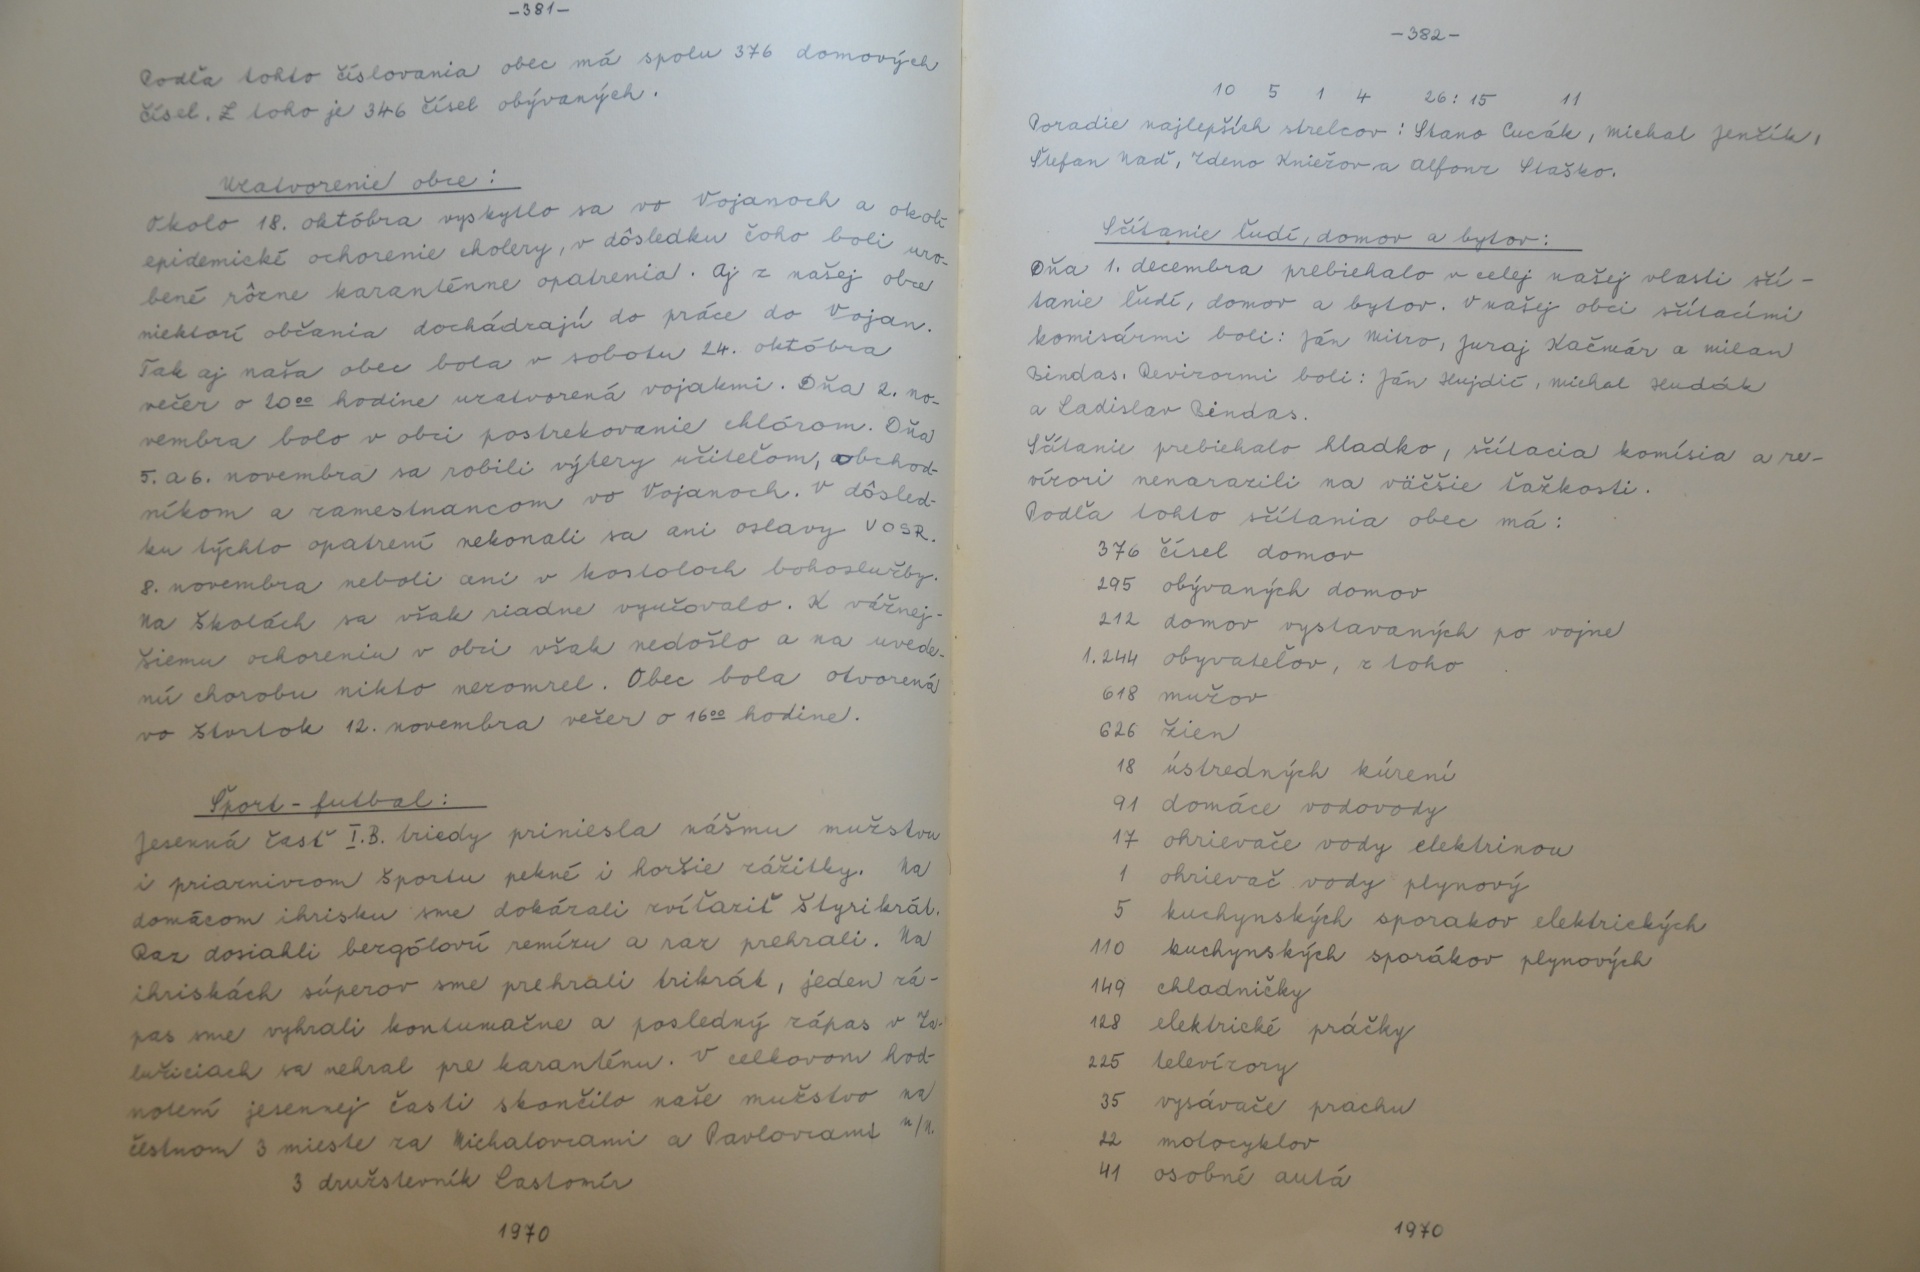 -381-
Podľa tohto číslovania obec má spolu 376 domových
čísel. Z toho je 346 čísel obývaných.
Uzatvorenie obce:
Okolo 18. októbra vyskytlo sa vo Vojanoch a okolí
epidemické ochorenie cholery, v dôsledku čoho boli uro-
bené rôzne karanténne opatrenia. Aj z našej obce
niektorí občania dochádzajú do práce do Vojan.
Tak aj naša obec bola v sobotu 24. októbra
večer o 20⁰⁰ hodine uzatvorená vojakmi. Dňa 2. no-
vembra bolo v obci postrekovanie chlórom. Dňa
5. a 6. novembra sa robili výtery učiteľom, obchod-
níkom a zamestnancom vo Vojanoch. V dôsled-
ku týchto opatrení nekonali sa ani oslavy VOSR.
8. novembra neboli ani v kostoloch bohoslužby.
Na školách sa však riadne vyučovalo. K vážnej-
šiemu ochoreniu v obci však nedošlo a na uvede-
nú chorobu nikto nezomrel. Obec bola otvorená
vo štvrtok 12. novembra večer o 16⁰⁰ hodine.
Šport - futbal:
Jesenná časť I.B. triedy priniesla nášmu mužstvu
i priaznivcom športu pekné i horšie zážitky. Na
domácom ihrisku sme dokázali zvíťaziť štyrikrát.
Raz dosiahli bezgólovú remízu a raz prehrali. Na
ihriskách súperov sme prehrali trikrát, jeden zá-
pas sme vyhrali kontumačne a posledný zápas v Za-
lužiciach sa nehral pre karanténu. V celkovom hod-
notení jesennej časti skončilo naše mužstvo na
čestnom 3 mieste za Michalovcami a Pavlovcami n/U.
3 družstevník Lastomír
1970
-382-
10 5 1 4 26:15 11
Poradie najlepších strelcov: Stano Cucák, Michal Jenžík,
Štefan Naď, Zdeno Kniežov a Alfonz Staško.
Sčítanie ľudí, domov a bytov:
Dňa 1. decembra prebiehalo v celej našej vlasti sčí-
tanie ľudí, domov a bytov. V našej obci sčítacími
komisármi boli: Ján Mitro, Juraj Kačmár a Milan
Bindas. Revízormi boli: Ján Hujdič, Michal Hudák
a Ladislav Bindas.
Sčítanie prebiehalo hladko, sčítacia komísia a re-
vízori nenarazili na väčšie ťažkosti.
Podľa tohto sčítania obec má:
376 čísel domov
295 obývaných domov
212 domov vystavaných po vojne
1.244 obyvateľov, z toho
618 mužov
626 žien
18 ústredných kúrení
91 domáce vodovody
17 ohrievače vody elektrinou
1 ohrievač vody plynový
5 kuchynských sporakov elektrických
110 kuchynských sporákov plynových
149 chladničky
128 elektrické práčky
225 televízory
35 vysávače prachu
22 motocyklov
41 osobné autá
1970